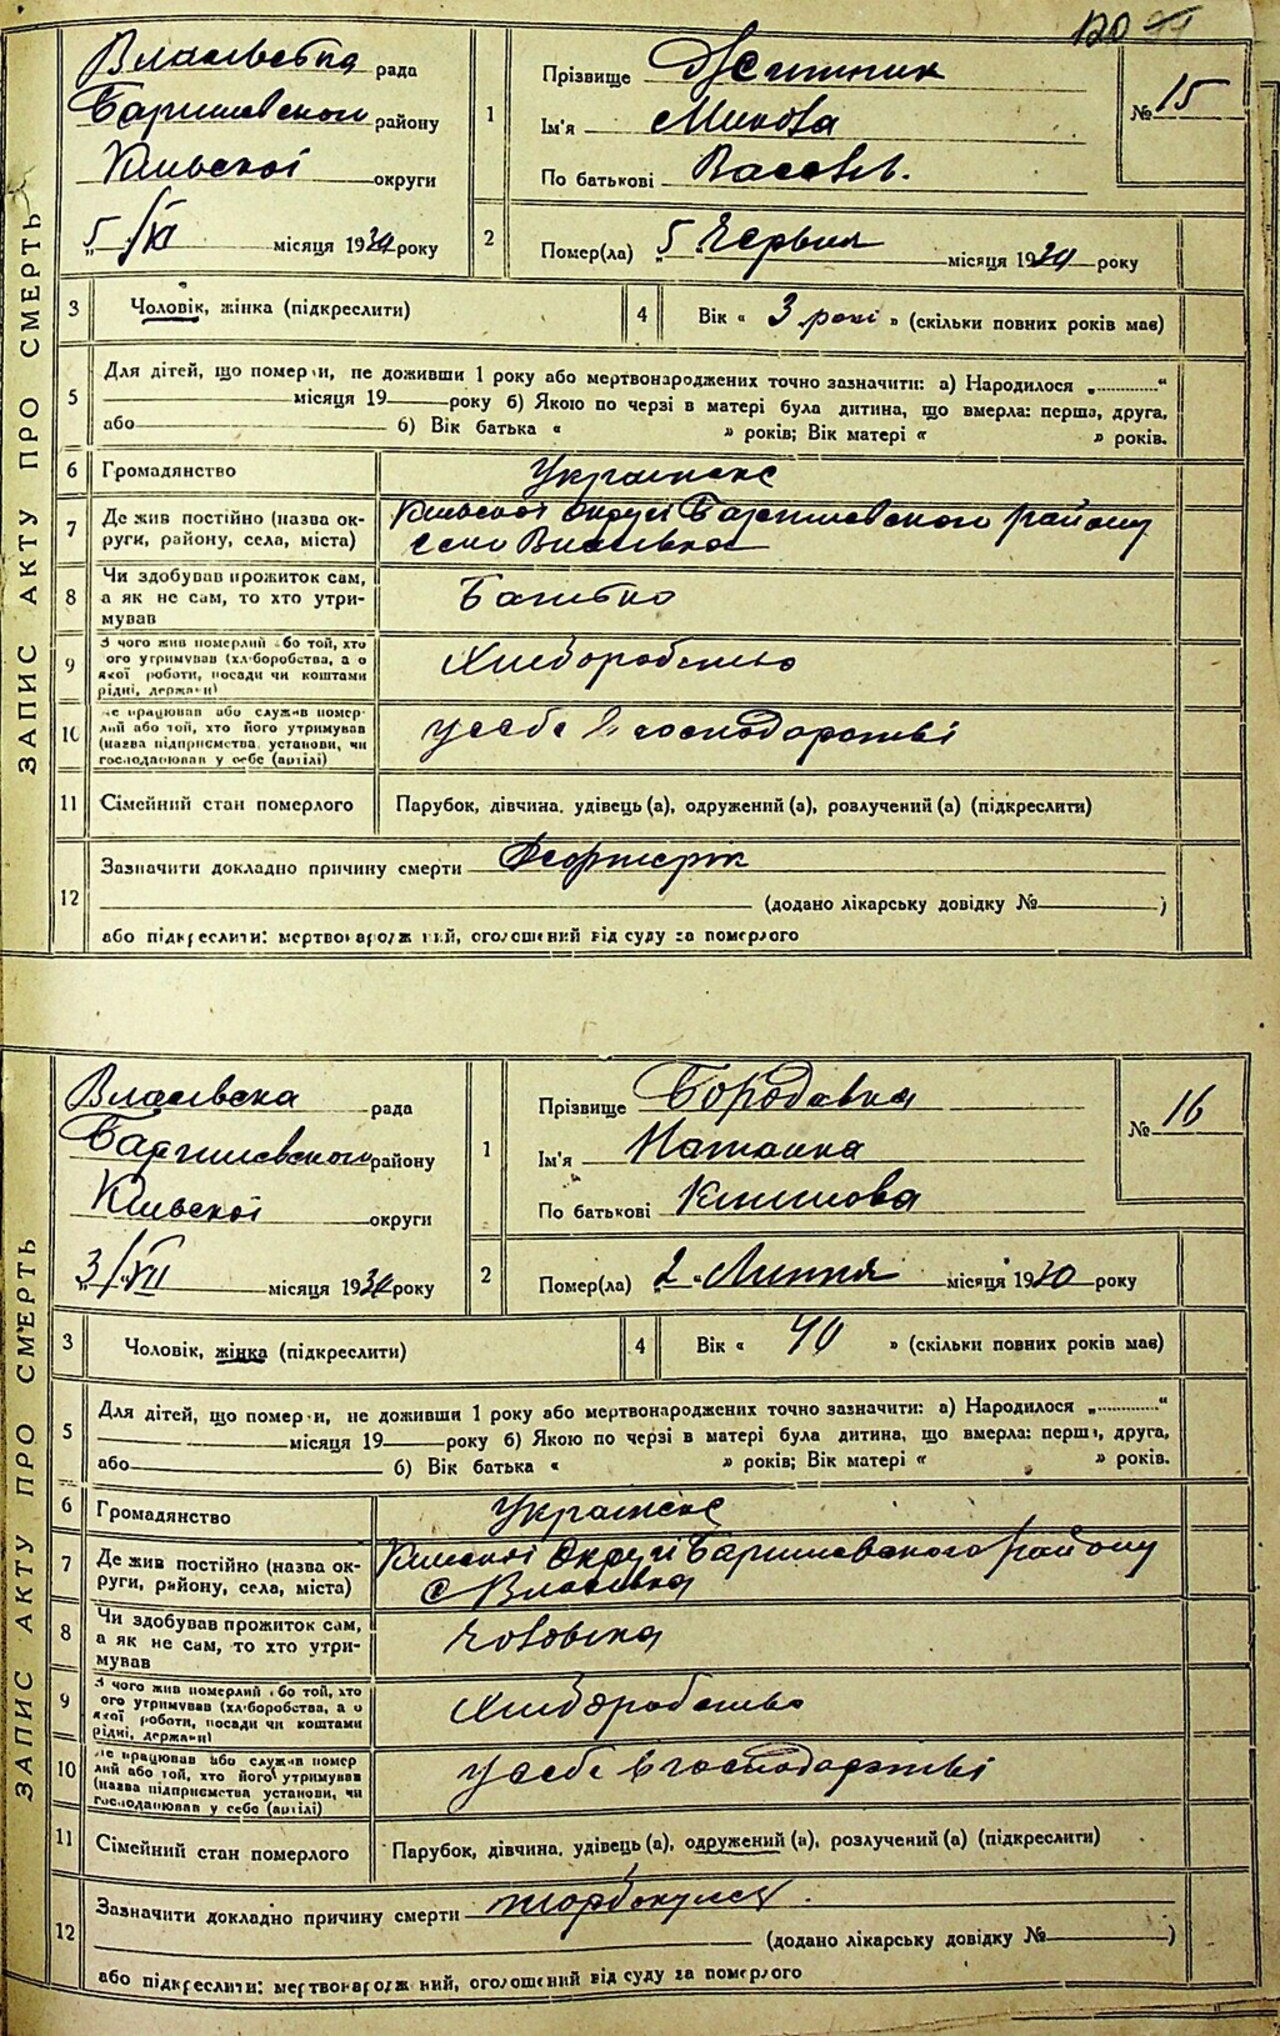 120
ЗАПИС АКТУ ПРО СМЕРТЬ
рада
Баришевского району
Київської округи
"5"/VI місяця 1930 року
1
Прізвище Житник
Ім'я Микола
По батькові Васов.
№ 15
2
Помер(ла) "5" Червня місяця 1930 року
3
Чоловік, жінка (підкреслити)
4
Вік « 3 рокі » (скільки повних років має)
5
Для дітей, що померли, не доживши 1 року або мертвонароджених точно зазначити: а) Народилося „............“
місяця 19 року б) Якою по черзі в матері була дитина, що вмерла: перша, друга,
або б) Вік батька « » років; Вік матері « » років.
6
Громадянство
Украінске
7
Де жив постійно (назва ок-
руги, району, села, міста)
Київскоі округі Баришевского району
село Власівка
8
Чи здобував прожиток сам,
а як не сам, то хто утри-
мував
Батько
9
З чого жив померлий або той, хто
його утримував (хліборобства, а о
якої роботи, посади чи коштами
рідні, держави)
Хліборобство
10
Де працював або служив помер-
лий або той, хто його утримував
(назва підприємства, установи, чи
господарював у себе (артілі)
у себе в господарстві
11
Сімейний стан померлого
Парубок, дівчина, удівець (а), одружений (а), розлучений (а) (підкреслити)
12
Зазначити докладно причину смерти
(додано лікарську довідку № )
або підкреслити: мертвонароджений, оголошений від суду за померлого
ЗАПИС АКТУ ПРО СМЕРТЬ
Власівска рада
Баришевского району
Київскоі округи
"3"/VII місяця 1930 року
1
Прізвище Бородавка
Ім'я Наталка
По батькові Климова
№ 16
2
Помер(ла) "2" Липня місяця 1930 року
3
Чоловік, жінка (підкреслити)
4
Вік « 40 » (скільки повних років має)
5
Для дітей, що померли, не доживши 1 року або мертвонароджених точно зазначити: а) Народилося „............“
місяця 19 року б) Якою по черзі в матері була дитина, що вмерла: перша, друга,
або б) Вік батька « » років; Вік матері « » років.
6
Громадянство
Украінске
7
Де жив постійно (назва ок-
руги, району, села, міста)
округі Баришевского району
с Власівка
8
Чи здобував прожиток сам,
а як не сам, то хто утри-
мував
Чоловіка
9
З чого жив померлий або той, хто
його утримував (хліборобства, а о
якої роботи, посади чи коштами
рідні, держави)
Хліборобство
10
Де працював або служив помер
лий або той, хто його утримував
(назва підприємства установи, чи
господарював у себе (артілі)
у себе в господарстві
11
Сімейний стан померлого
Парубок, дівчина, удівець (а), одружений (а), розлучений (а) (підкреслити)
12
Зазначити докладно причину смерти
(додано лікарську довідку № )
або підкреслити: мертвонароджений, оголошений від суду за померлого